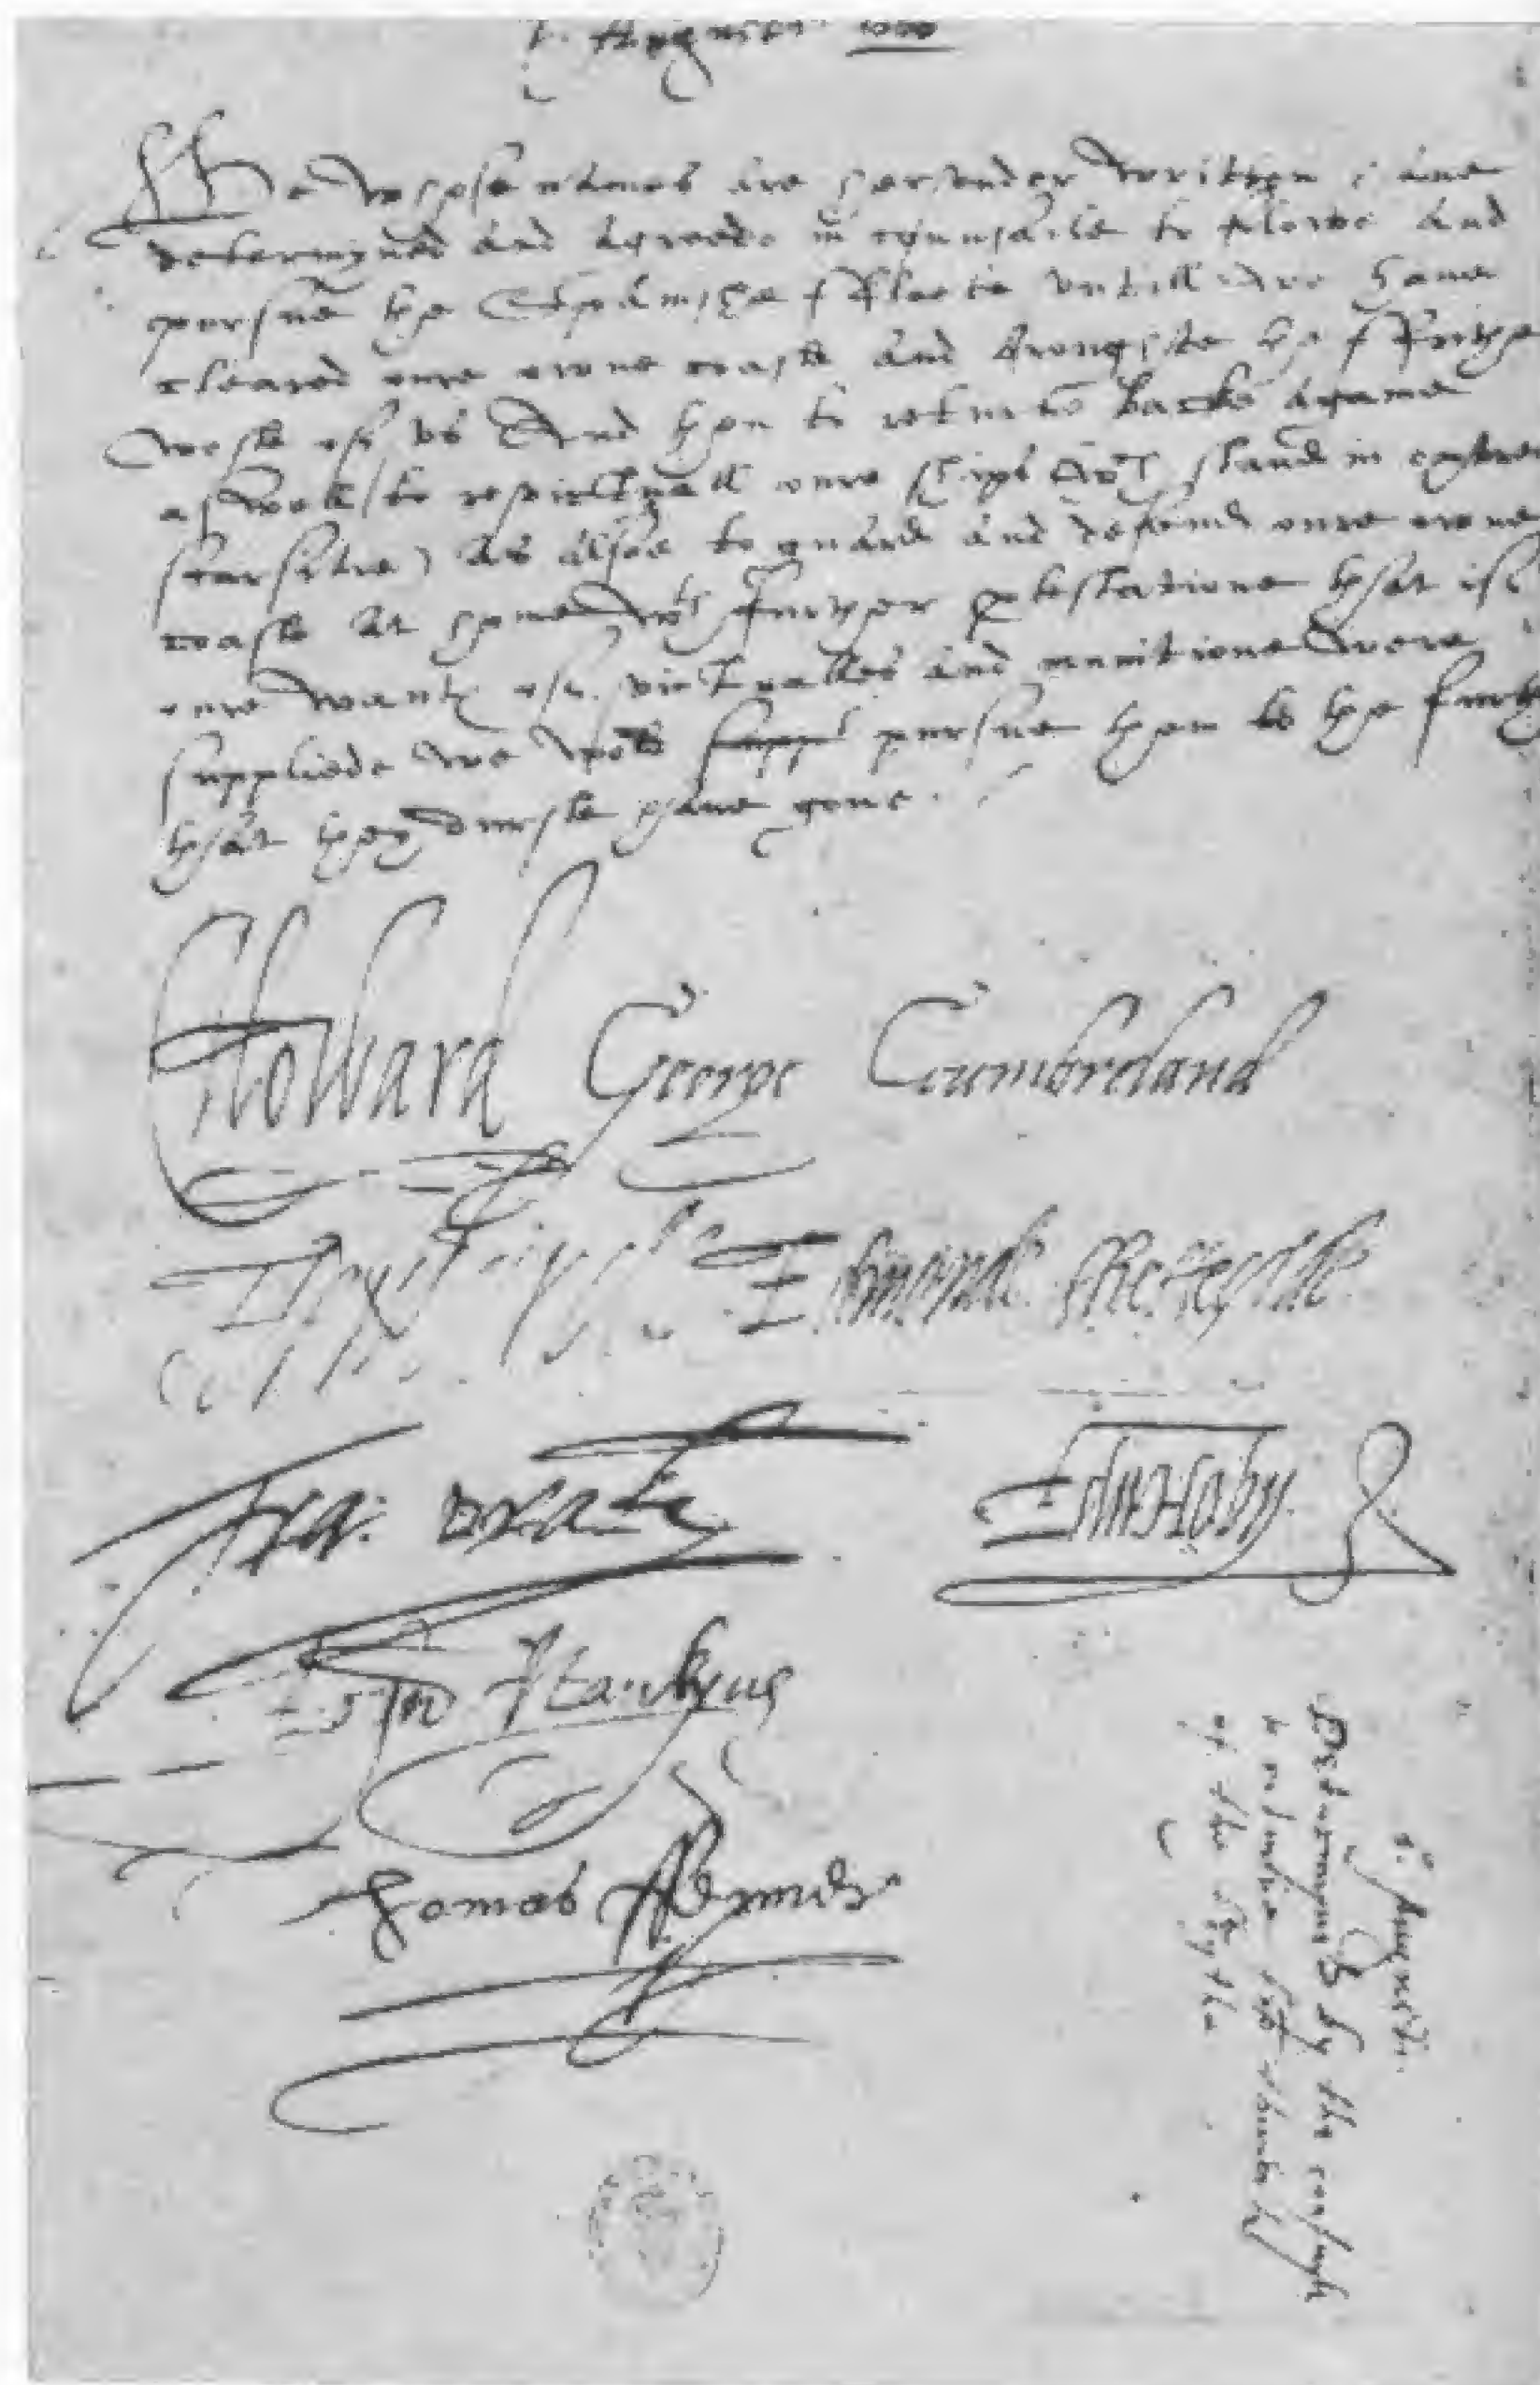 1 Augusti 1588
We whose names are hereunder written have
determyned and agreede in counsaile to folowe and
pursue the Spanishe Fleete untill we have
cleared oure owne coaste and broughte the Frithe
weste of us And then to returne backe againe
aswell to revictuall oure ships wch stand in extreme
scarsitie) as alsoe to guard and defend oure owne
coaste at home wth further protestatione that if
oure wants of victualles and munitione were
suppliede we wold suppl pursue them to the furthest
that they durste have gone.
Howard George Cumbreland
T Howard Edmonde Sheffeylde
Fra: Drake Edw Hoby
John Hawkyns
Thomas Fenner